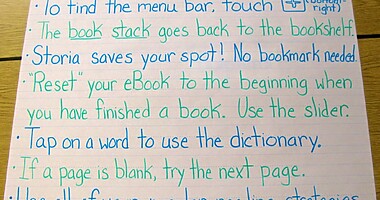 · To find the menu bar, touch (bottom right)
· The book stack goes back to the bookshelf.
· Storia saves your spot! No bookmark needed.
· "Reset" your eBook to the beginning when
you have finished a book. Use the slider.
· Tap on a word to use the dictionary.
· If a page is blank, try the next page.
· Use all of your